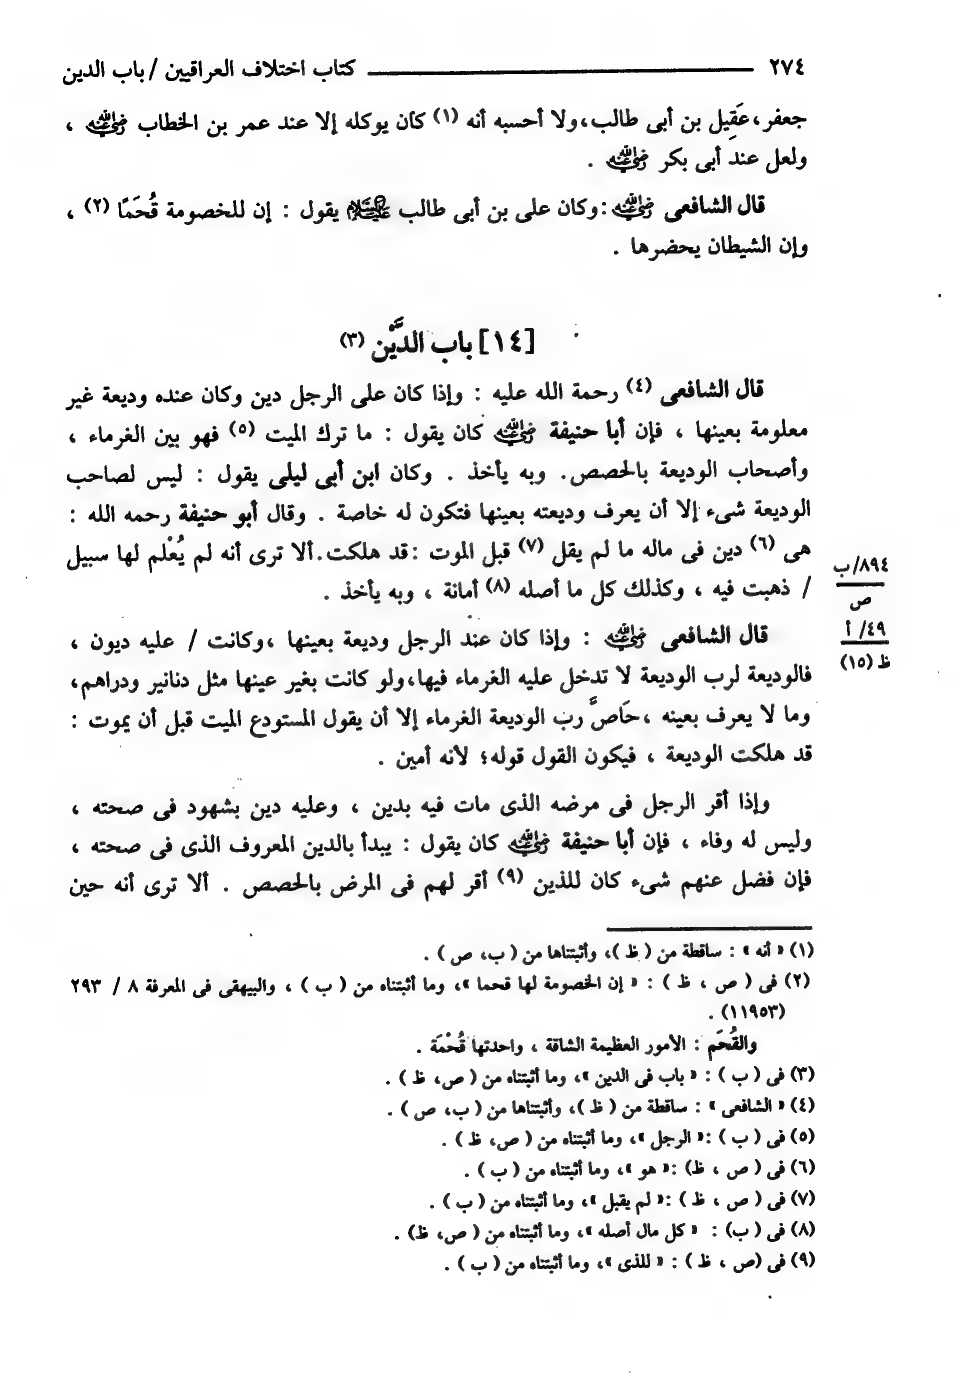 ٢٧٤ ــــــــــــــــ كتاب اختلاف العراقيين / باب الدين
جعفر،عَقِيل بن أبى طالب،ولا أحسبه أنه (١) كان يوكله إلا عند عمر بن الخطاب رضي الله عنه ،
ولعل عند أبى بكر رضي الله عنه .
قال الشافعى رضي الله عنه :وكان على بن أبى طالب عليه السلام يقول : إن للخصومة قُحَمًا (٢) ،
وإن الشيطان يحضرها .
[١٤] باب الدَّيْن (٣)
قال الشافعى (٤) رحمة الله عليه : وإذا كان على الرجل دين وكان عنده وديعة غير
معلومة بعينها ، فإن أبا حنيفة رضي الله عنه كان يقول : ما ترك الميت (٥) فهو بين الغرماء ،
وأصحاب الوديعة بالحصص. وبه يأخذ . وكان ابن أبى ليلى يقول : ليس لصاحب
الوديعة شىء إلا أن يعرف وديعته بعينها فتكون له خاصة . وقال أبو حنيفة رحمه الله :
هى (٦) دين فى ماله ما لم يقل (٧) قبل الموت :قد هلكت.ألا ترى أنه لم يُعْلم لها سبيل
/ ذهبت فيه ، وكذلك كل ما أصله (٨) أمانة ، وبه يأخذ .
٨٩٤/ب
ص
قال الشافعى رضي الله عنه : وإذا كان عند الرجل وديعة بعينها ،وكانت / عليه ديون ،
٤٩/ أ
ظ (١٥)
فالوديعة لرب الوديعة لا تدخل عليه الغرماء فيها،ولو كانت بغير عينها مثل دنانير ودراهم،
وما لا يعرف بعينه ،حَاصَّ رب الوديعة الغرماء إلا أن يقول المستودع الميت قبل أن يموت :
قد هلكت الوديعة ، فيكون القول قوله؛ لأنه أمين .
وإذا أقر الرجل فى مرضه الذى مات فيه بدين ، وعليه دين بشهود فى صحته ،
وليس له وفاء ، فإن أبا حنيفة رضي الله عنه كان يقول : يبدأ بالدين المعروف الذى فى صحته ،
فإن فضل عنهم شىء كان للذين (٩) أقر لهم فى المرض بالحصص . ألا ترى أنه حين
(١) « أنه » : ساقطة من ( ظ )، وأثبتناها من ( ب، ص ) .
(٢) فى ( ص ، ظ ) : « إن الخصومة لها قحما »، وما أثبتناه من ( ب ) ، والبيهقى فى المعرفة ٨ / ٢٩٣
(١١٩٥٣) .
والقُحَم : الأمور العظيمة الشاقة ، واحدتها قُحْمَة .
(٣) فى ( ب ) : « باب فى الدين »، وما أثبتناه من ( ص، ظ ) .
(٤) « الشافعى » : ساقطة من ( ظ )، وأثبتناها من ( ب، ص ) .
(٥) فى ( ب ) :« الرجل »، وما أثبتناه من ( ص، ظ ) .
(٦) فى ( ص ، ظ) :« هو »، وما أثبتناه من ( ب ) .
(٧) فى ( ص ، ظ ) :« لم يقبل »، وما أثبتناه من ( ب ) .
(٨) فى ( ب) : « كل مال أصله »، وما أثبتناه من ( ص، ظ) .
(٩) فى (ص ، ظ ) : « للذى »، وما أثبتناه من ( ب ) .